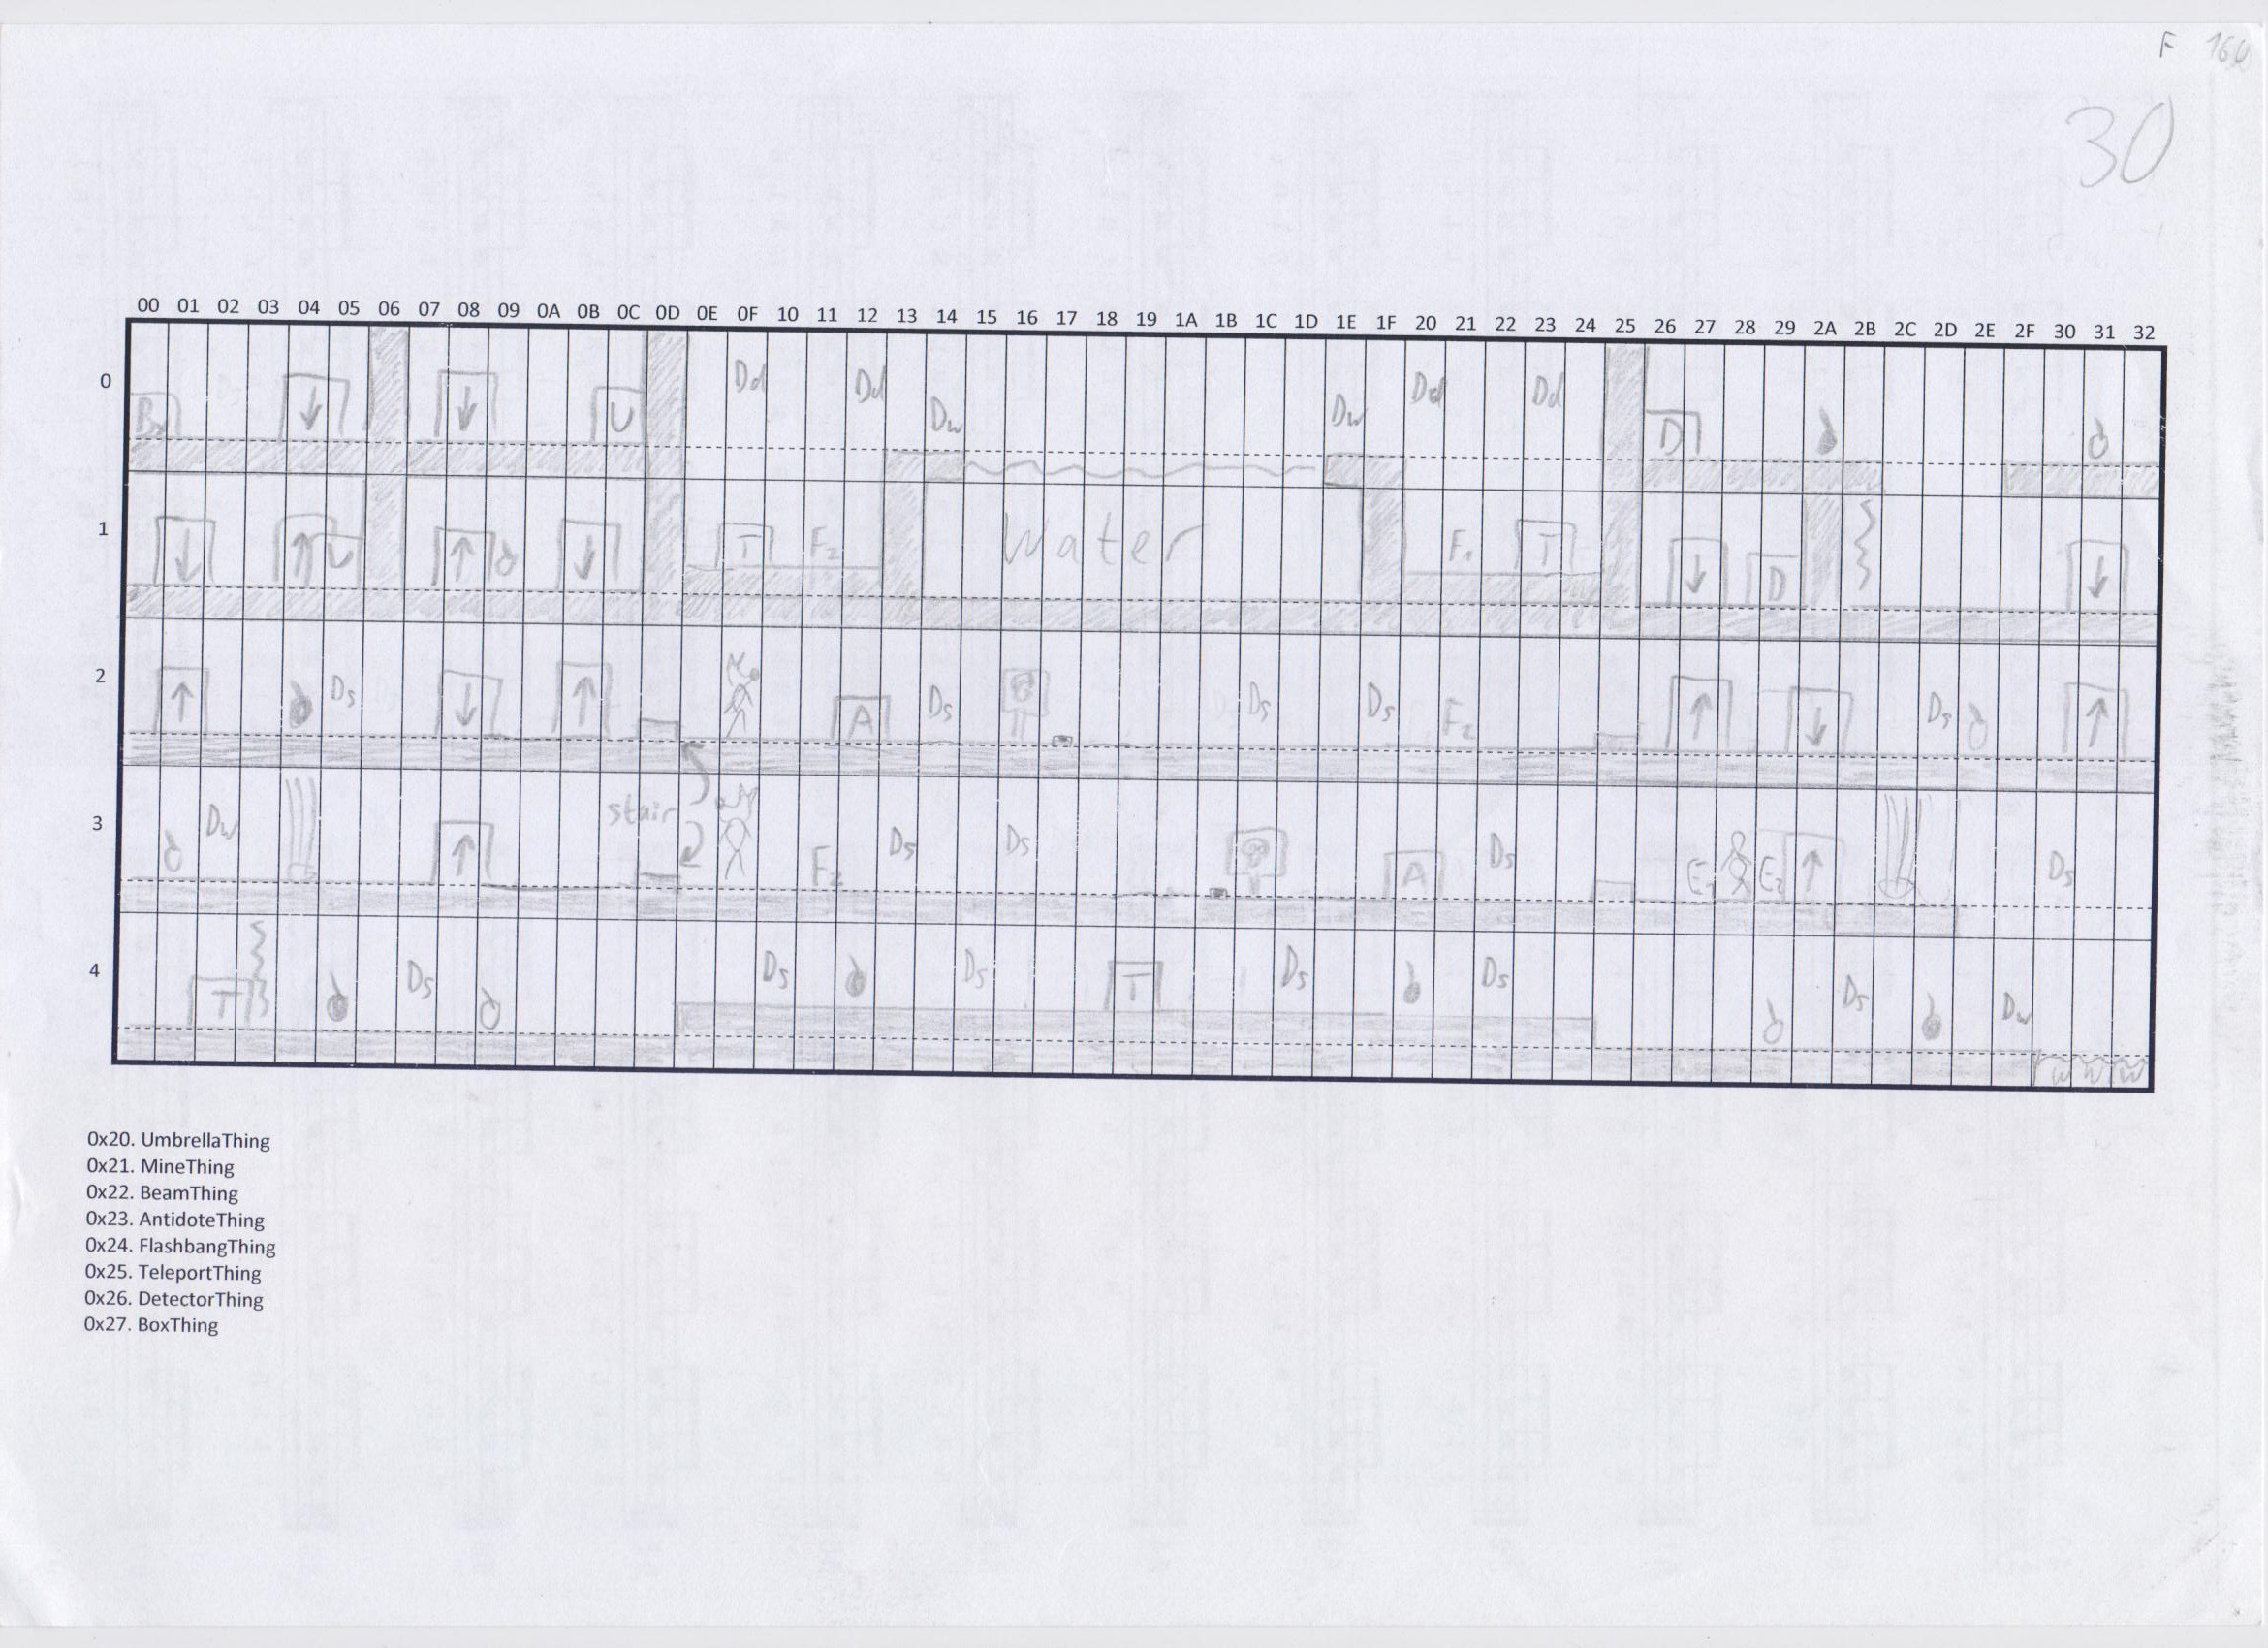 F 160
30
00 01 02 03 04 05 06 07 08 09 0A 0B 0C 0D 0E 0F 10 11 12 13 14 15 16 17 18 19 1A 1B 1C 1D 1E 1F 20 21 22 23 24 25 26 27 28 29 2A 2B 2C 2D 2E 2F 30 31 32
0 U Dd Dd Dw Dw Dd Dd D
1 U T F2 Water F1 T D
2 Ds A Ds Ds Ds F2 Ds
3 Dw stair F2 Ds Ds A Ds E1 E2 Ds
4 T Ds Ds Ds T Ds Ds Ds Dw
W W W
0x20. UmbrellaThing
0x21. MineThing
0x22. BeamThing
0x23. AntidoteThing
0x24. FlashbangThing
0x25. TeleportThing
0x26. DetectorThing
0x27. BoxThing